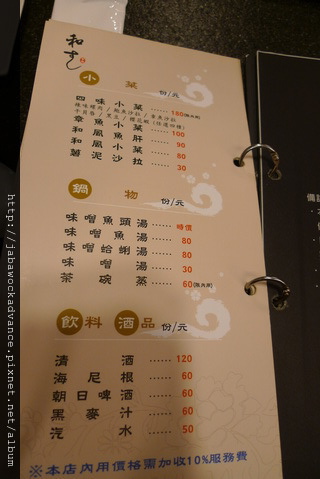 小菜 份/元
四味小菜 ...... 180(無水煮)
章魚小菜 ...... 100
和風魚肝 ...... 90
和風沙拉 ...... 60
薯泥沙拉 ...... 30
鍋物 份/元
味噌魚頭湯 ...... 時價
味噌魚湯 ...... 80
味噌蛤蜊湯 ...... 80
味噌湯 ...... 30
茶碗蒸 ...... 60
飲料 酒品 份/元
清酒 ...... 120
海尼根 ...... 60
朝日啤酒 ...... 60
黑麥汁 ...... 60
汽水 ...... 50
※本店內用價格需加收10%服務費
備註
http://jabawockadvance.pixnet.net/album